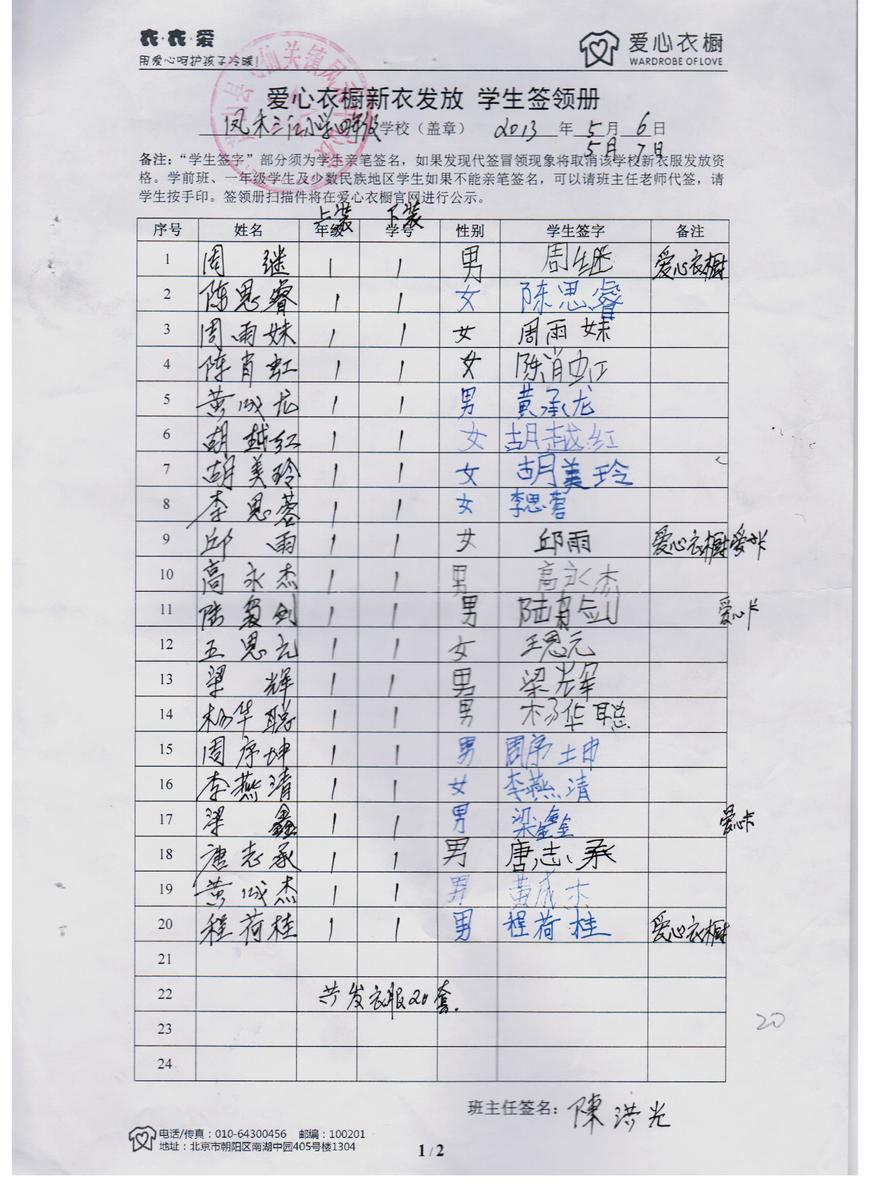 衣·衣·爱
用爱心呵护孩子冷暖!
爱心衣橱
WARDROBE OF LOVE
爱心衣橱新衣发放 学生签领册
学校(盖章) 2013 年 5 月 6 日
5月7日
备注:“学生签字”部分须为学生亲笔签名,如果发现代签冒领现象将取消该学校新衣服发放资
格。学前班、一年级学生及少数民族地区学生如果不能亲笔签名,可以请班主任老师代签,请
学生按手印。签领册扫描件将在爱心衣橱官网进行公示。
上装 下装
序号 姓名 年级 学号 性别 学生签字 备注
1 周继 1 1 男 周继 爱心衣橱
2 陈思睿 1 1 女 陈思睿
3 周雨妹 1 1 女 周雨妹
4 陈肖虹 1 1 女 陈肖虹
5 黄承龙 1 1 男 黄承龙
6 胡越红 1 1 女 胡越红
7 胡美玲 1 1 女 胡美玲
8 李思蓉 1 1 女 李思蓉
9 邱雨 1 1 女 邱雨 爱心衣橱爱心卡
10 高永杰 1 1 男 高永杰
11 陆 剑 1 1 男 陆 剑 爱心卡
12 王思元 1 1 女 王思元
13 梁辉 1 1 男 梁辉
14 杨华聪 1 1 男 杨华聪
15 周序坤 1 1 男 周序坤
16 李燕清 1 1 女 李燕清
17 梁鑫 1 1 男 梁鑫 爱心卡
18 唐志承 1 1 男 唐志承
19 黄成杰 1 1 男 黄成杰
20 程荷桂 1 1 男 程荷桂 爱心衣橱
21
22 共发衣服20套.
23
24
20
班主任签名: 陳洪光
电话/传真:010-64300456 邮编:100201
地址:北京市朝阳区南湖中园405号楼1304
1 / 2